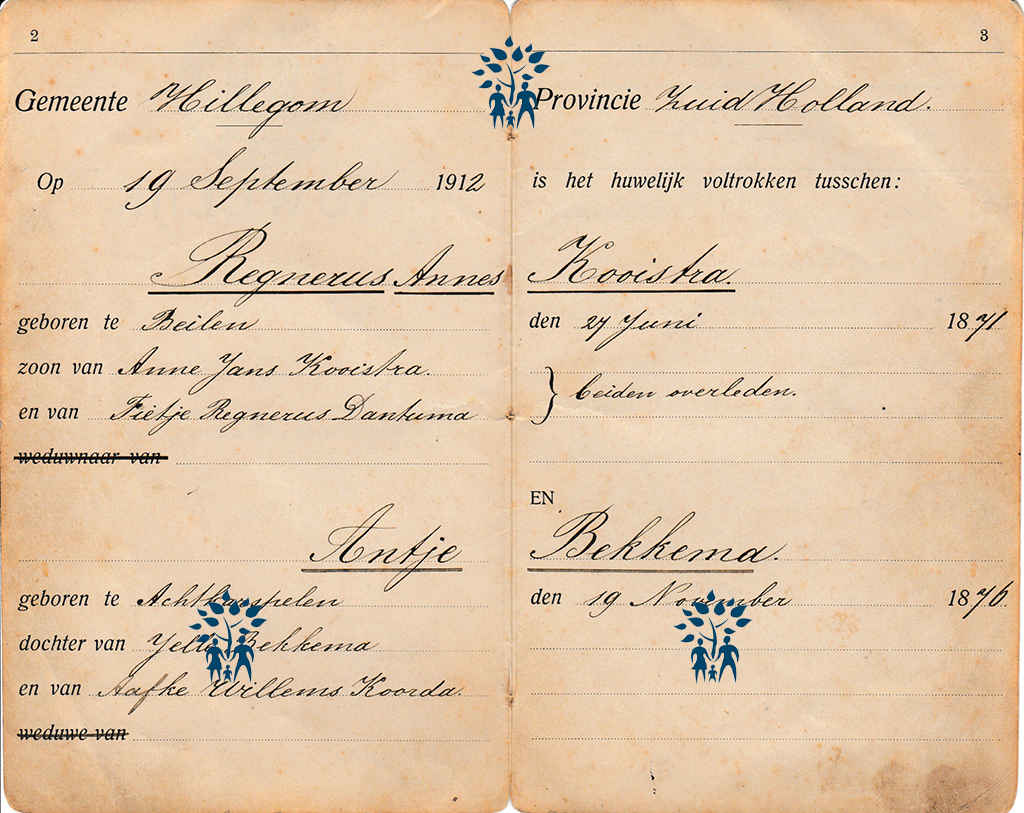 2
3
Gemeente Hillegom Provincie Zuid Holland.
Op 19 September 1912 is het huwelijk voltrokken tusschen:
Regnerus Annes Kooistra.
geboren te Beilen den 27 Juni 1871
zoon van Anne Jans Kooistra.
en van Fietje Regnerus Dantuma } beiden overleden.
weduwnaar van
EN
Antje Bekkema.
geboren te Achtkarspelen den 19 November 1876.
dochter van Bekkema
en van Aafke Willems Koorda.
weduwe van